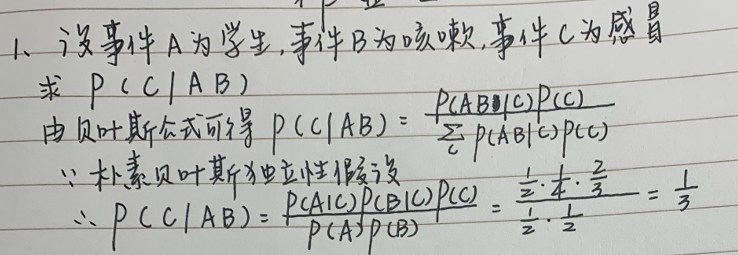 1、设事件A为学生,事件B为咳嗽,事件C为感冒
求 P(C|AB)
由贝叶斯公式可得 P(C|AB) = P(AB|C)P(C) / ∑_C P(AB|C)P(C)
∵ 朴素贝叶斯独立性假设
∴ P(C|AB) = P(A|C)P(B|C)P(C) / P(A)P(B) = 1/2·1/4·2/3 / 1/2·1/2 = 1/3